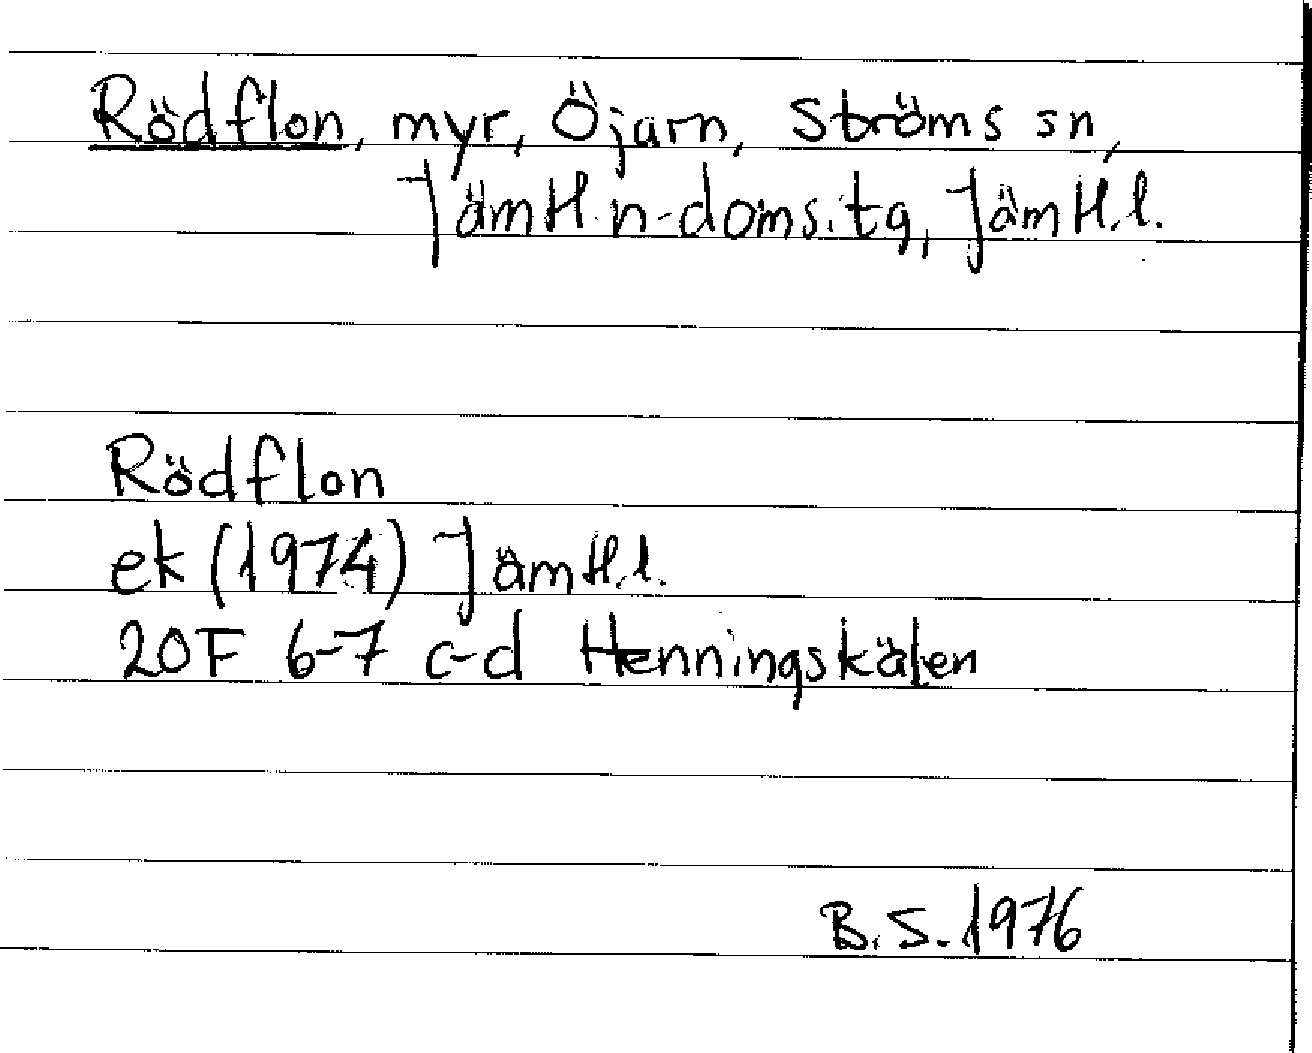 Rödflon, myr, Öjarn, Ströms sn,
Jämtl.n-doms.tg, Jämtl.l.
Rödflon
ek (1974) Jämtl.l.
20F 6-7 c-d Henningskälen
B.S. 1976